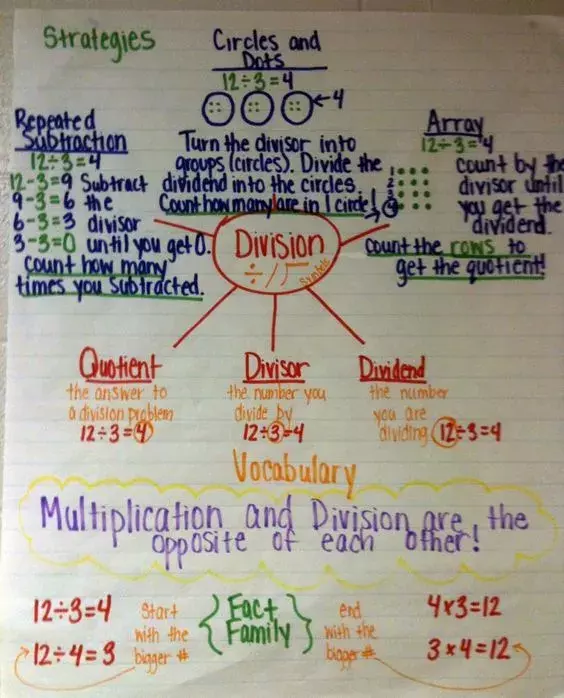 Strategies
Circles and
Dots
12÷3=4
4
Repeated
Subtraction
12÷3=4
12-3=9 Subtract
9-3=6 the
6-3=3 divisor
3-3=0 until you get 0.
Count how many
times you Subtracted.
Turn the divisor into
groups (circles). Divide the
dividend into the circles.
Count how many are in 1 circle!
Array
12÷3=4
1
2
3
4
count by the
divisor until
you get the
dividend.
count the rows to
get the quotient!
Division
÷ /
Symbols
Quotient
the answer to
a division problem
12÷3=4
Divisor
the number you
divide by
12÷3=4
Dividend
the number
you are
dividing 12÷3=4
Vocabulary
Multiplication and Division are the
opposite of each other!
12÷3=4
12÷4=3
Start
with the
bigger #
Fact
Family
end
with the
bigger #
4x3=12
3x4=12